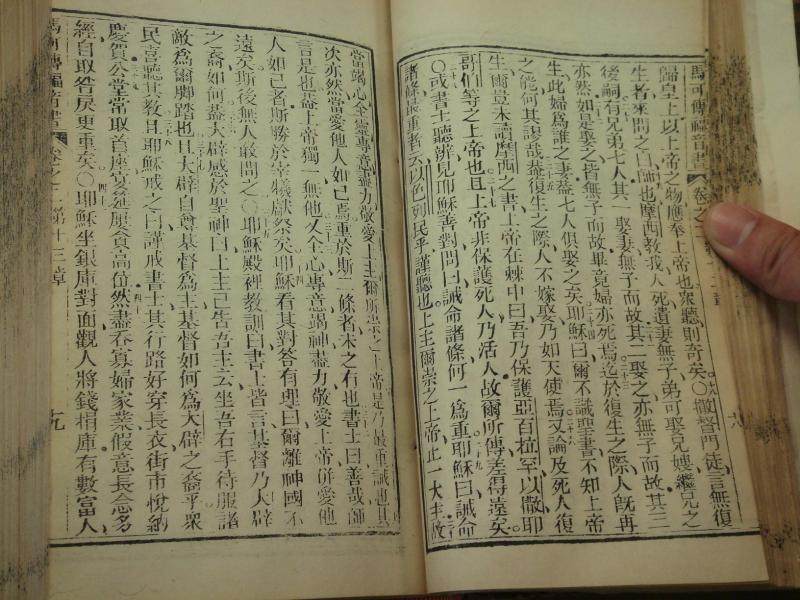 馬可傳福音書 卷之二
歸皇上以上帝之物應奉上帝也眾聽則奇矣○撒督門徒言無復
生者來問之曰師也摩西教我人死遺妻無子弟可娶兄嫂繼兄之
後嗣有兄弟七人其一娶妻無子而故其二娶之亦無子而故其三
亦然如是娶之皆無子而故畢竟婦亦死焉迄於復生之際人既再
生此婦為誰之妻蓋七人俱娶之矣耶穌曰爾不識聖書不知上帝
之能何其謬哉蓋復生之際人不嫁娶乃如天使焉又論及死人復
生爾豈未讀摩西之書上帝在棘中曰吾乃保護亞百拉罕以撒耶
哥伯等之上帝也且上帝非保護死人乃活人故爾所傳差得遠矣
○或書士聽辨見耶穌善對問曰誡命諸條何一為重耶穌曰誡命
諸條最重者云以色列民乎謹聽也上主爾崇之上帝止一大主故
當竭心全靈專意盡力敬愛上主爾所崇之上帝是乃最重誡也其
次亦然當愛他人如己焉重於斯二條者未之有也書士曰善哉師
言是也蓋上帝獨一無他又全心專意竭神盡力敬愛上帝併愛他
人如己者斯勝於宰犧獻祭矣耶穌看其對答有理曰爾離神國不
遠矣斯後無人敢問之○耶穌殿裡教訓曰書士皆言基督乃大辟
之裔如何蓋大辟感於聖神曰上主已告吾主云坐吾右手待服諸
敵為爾腳踏也且大辟自尊基督為主基督如何為大辟之裔乎眾
民喜聽其教且耶穌戒之曰謹戒書士其行路好穿長衣街市悅納
慶賀公堂常取首座宴筵屢貪高位然盡吞寡婦家業假意長念多
經自取咎戾更重矣○耶穌坐銀庫對面觀人將錢捐庫有數富人
馬可傳福音書 卷之二 第十三章 十九